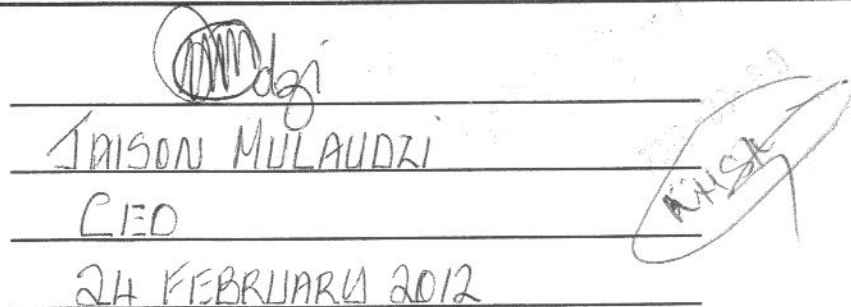 JAISON MULAUDZI
CEO
24 FEBRUARY 2012